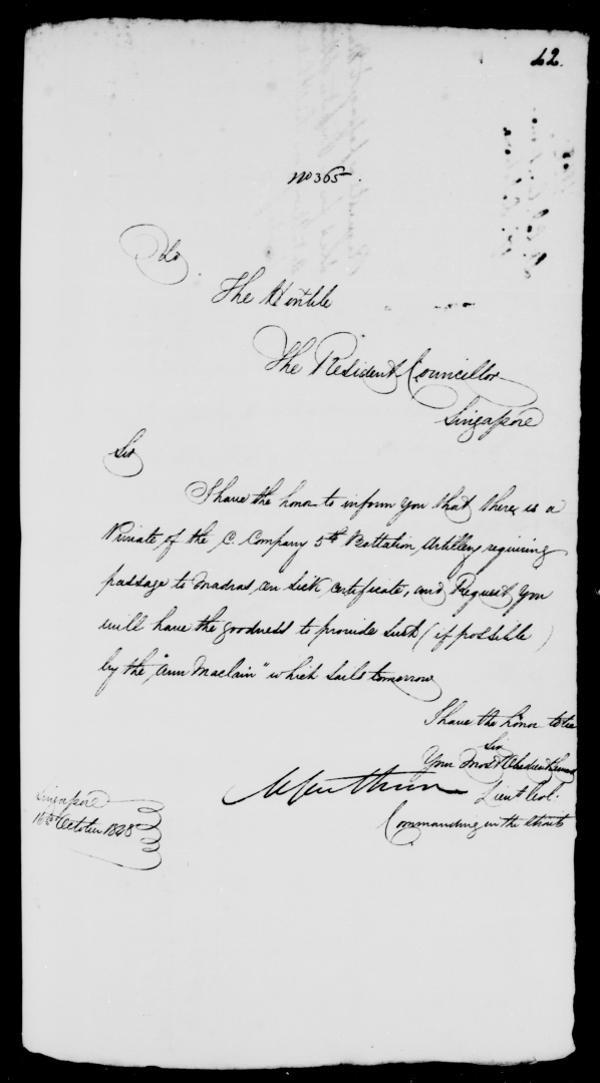 42.
No 365.
To
The Honble
The Resident Councillor
Singapore
Sir
I have the honor to inform you that there is a
Private, of the C. Company 5th Battalion Artillery requiring
passage to Madras, on Sick certificate, and Request you
will have the goodness to provide such (if possible)
by the "Ann Maclain" which Sails tomorrow
I have the honor to be
Sir
Your Most Obedient Servant
Lieut Col.
Commanding in the Straits
Singapore
16th October 1828